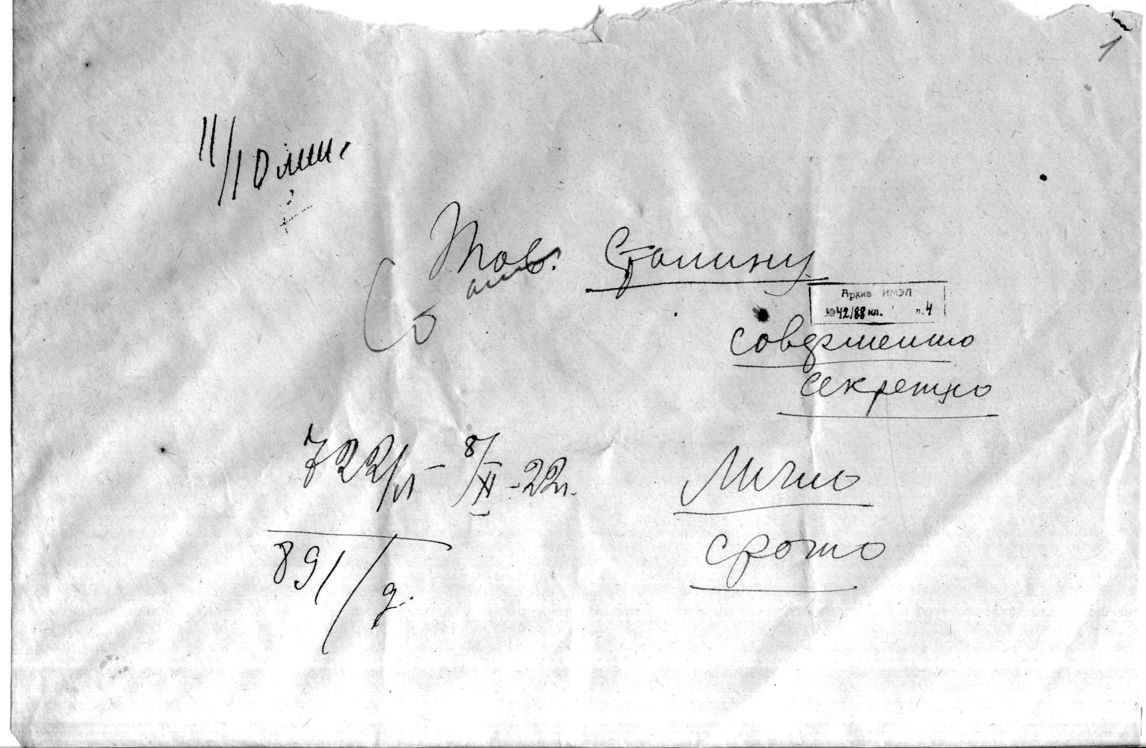 1
11/10 мин.
Тов. Сталину
Архив ИМЭЛ
№42/88 нл. п.4
совершенно
секретно
722/п 8/XII-22г.
Лично
срочно
891/д.